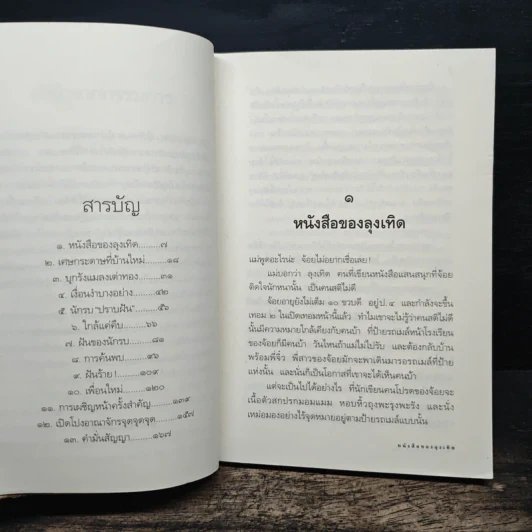 สารบัญ
๑. หนังสือของลุงเทิด........๗
๒. เศษกระดาษที่บ้านใหม่........๑๘
๓. บุกรังแมลงเต่าทอง........๓๑
๔. เงื่อนงำบางอย่าง........๔๒
๕. นักรบ"ปราบฝัน"........๕๒
๖. ใกล้แค่คืบ........๖๖
๗. ฝันของนักรบ........๘๑
๘. การค้นพบ........๙๖
๙. ฝันร้าย!........๑๐๙
๑๐. เพื่อนใหม่........๑๒๐
๑๑. การเผชิญหน้าครั้งสำคัญ........๑๓๙
๑๒. เปิดโปงอาณาจักรจุดจุดจุด........๑๕๗
๑๓. คำมั่นสัญญา........๑๖๗
๑
หนังสือของลุงเทิด
แม่พูดอะไรน่ะ จ้อยไม่อยากเชื่อเลย!
แม่บอกว่า ลุงเทิด คนที่เขียนหนังสือแสนสนุกที่จ้อย
ติดใจนักหนานั้น เป็นคนสติไม่ดี
จ้อยอายุยังไม่เต็ม ๑๐ ขวบดี อยู่ป.๔ และกำลังจะขึ้น
เทอม ๒ ในเปิดเทอมหน้านี้แล้ว ทำไมเขาจะไม่รู้ว่าคนสติไม่ดี
นั้นมีความหมายใกล้เคียงกับคนบ้า ที่ป้ายรถเมล์หน้าโรงเรียน
ของจ้อยก็มีคนบ้า วันไหนถ้าแม่ไม่ไปรับ และต้องกลับบ้าน
พร้อมพี่จิ๋ว พี่สาวของจ้อยมักจะพาเดินมารอรถเมล์ที่ป้าย
แห่งนั้น และนั่นก็เป็นโอกาสที่เขาจะได้เห็นคนบ้า
แต่จะเป็นไปได้อย่างไร ที่นักเขียนคนโปรดของจ้อยจะ
เนื้อตัวสกปรกมอมแมม หอบหิ้วถุงพะรุงพะรัง และนั่ง
เหม่อมองอย่างไร้จุดหมายอยู่ตามป้ายรถเมล์แบบนั้น
หนังสือของลุงเทิด